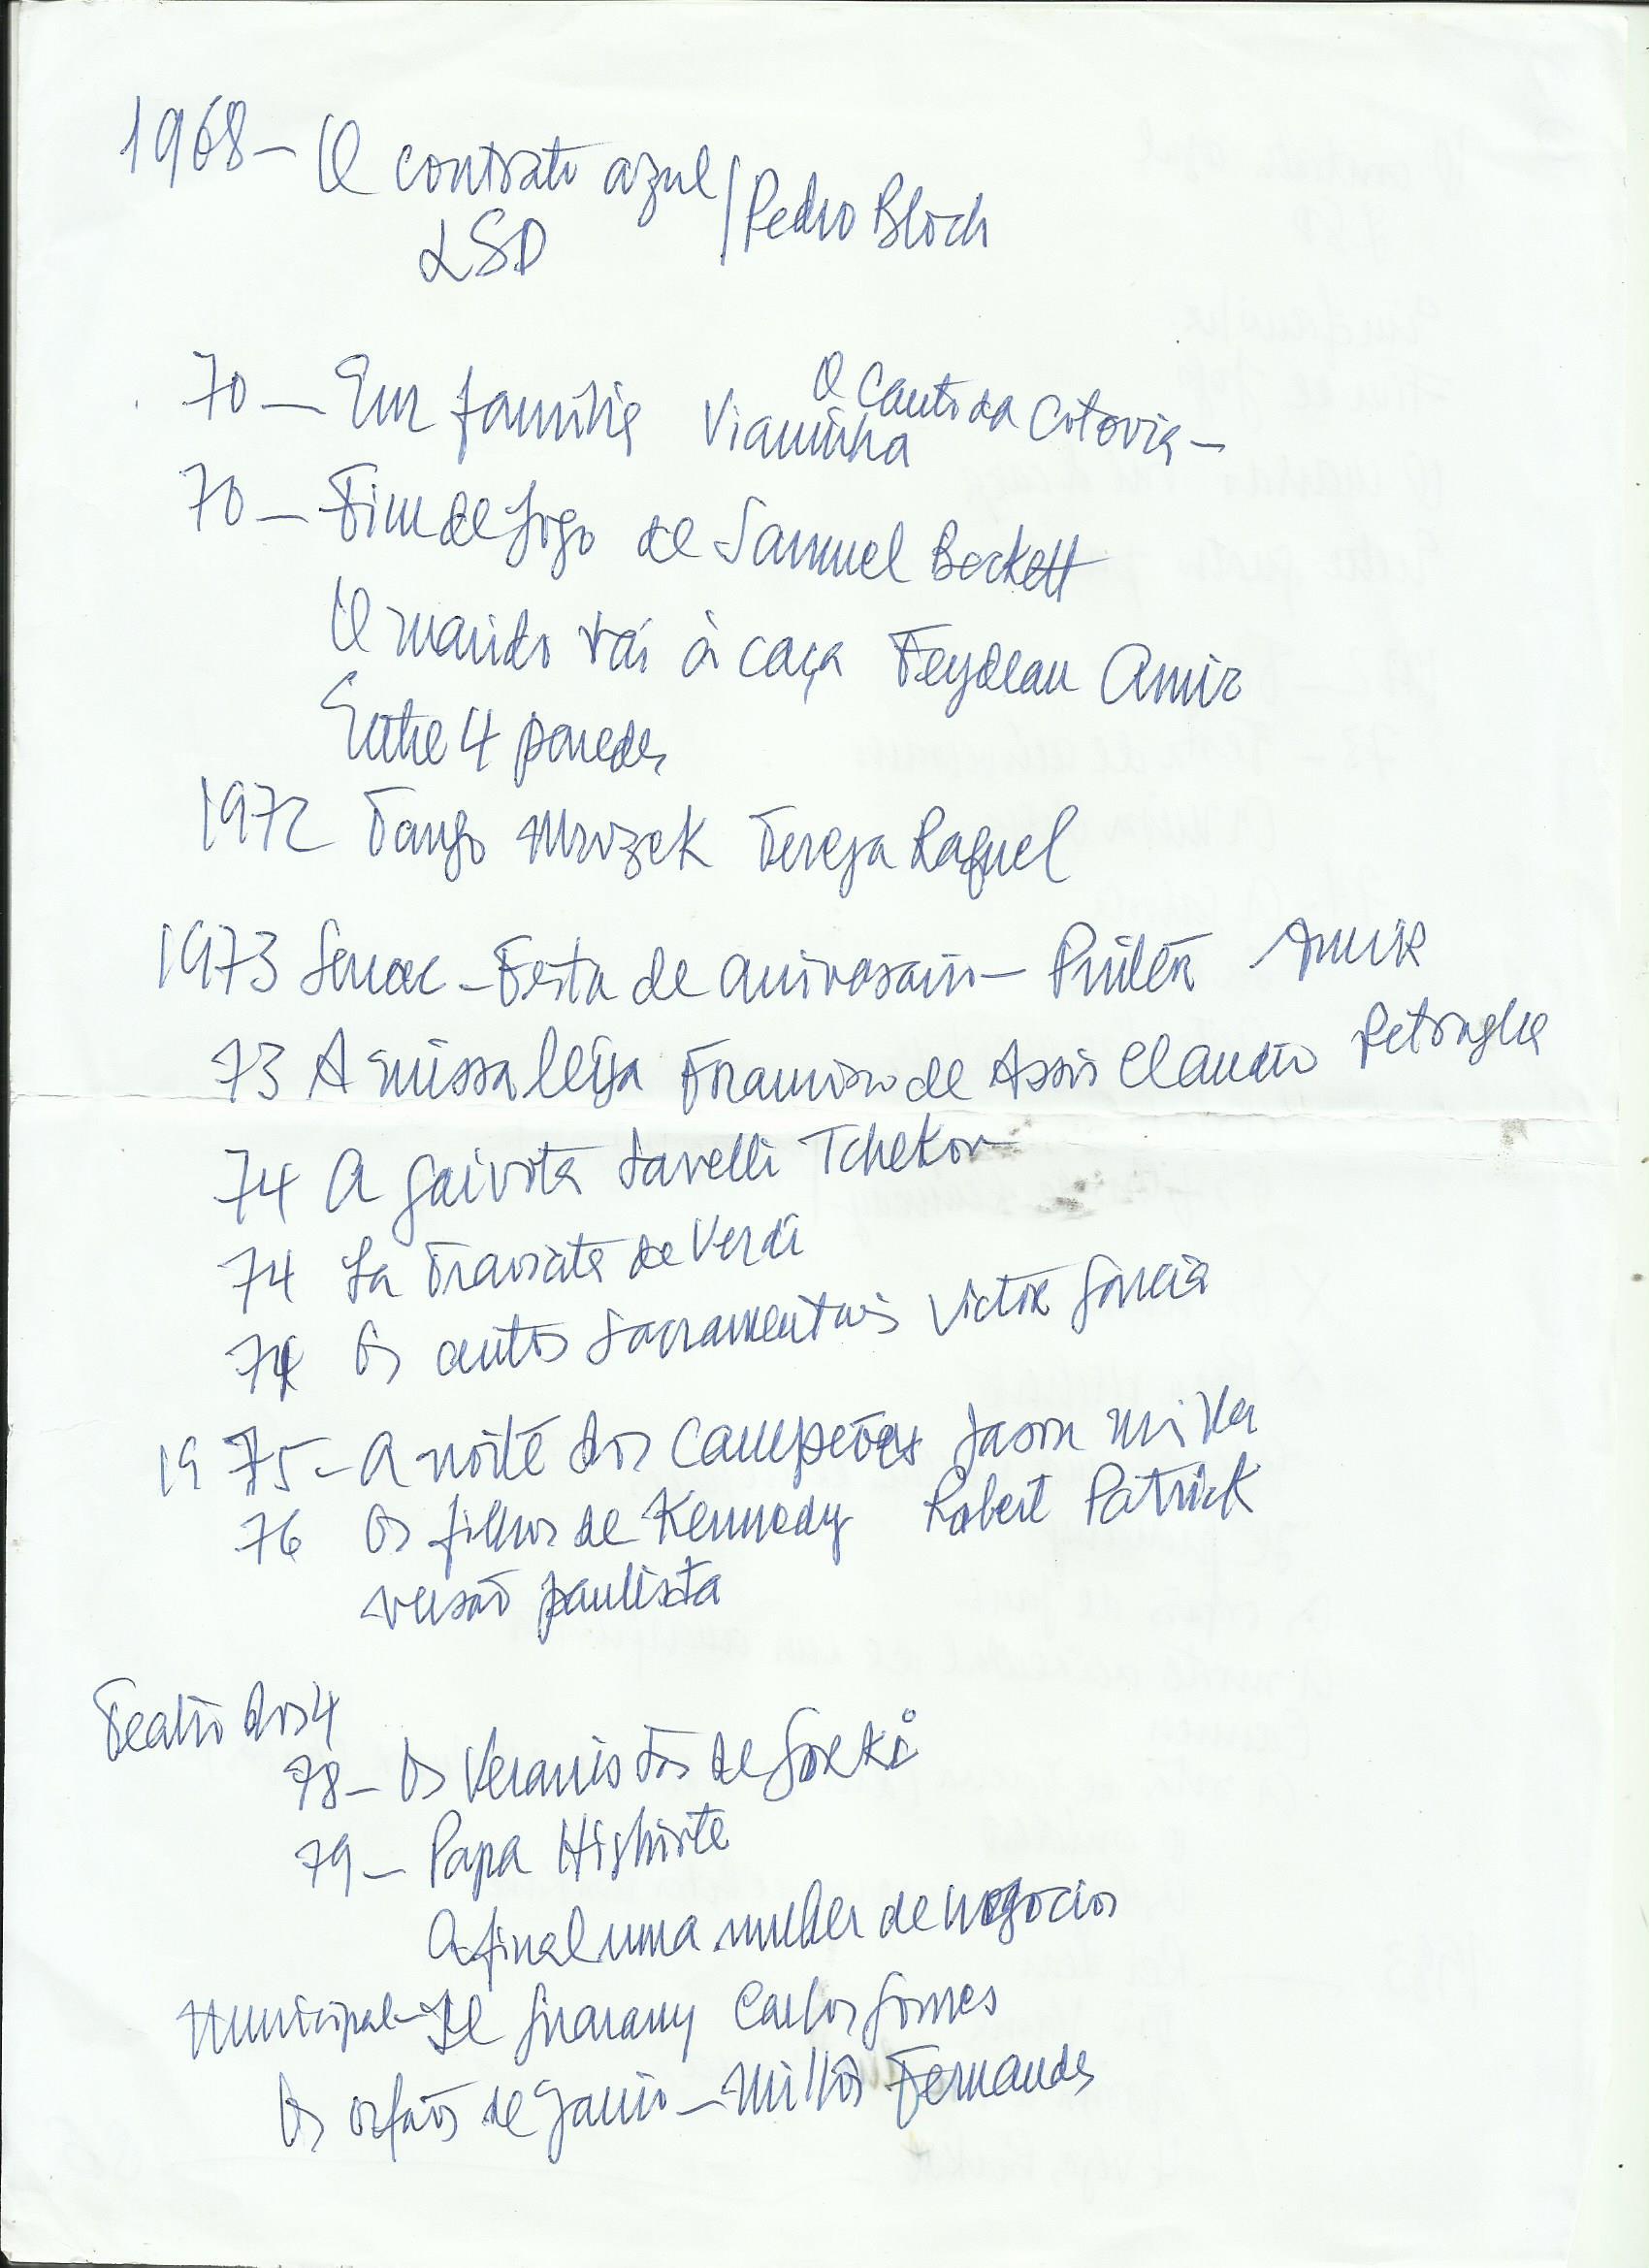 1968 - O contrato azul / Pedro Bloch
LSD
70 - Em família Vianinha O Canto da Cotovia -
70 - Fim de Jogo de Samuel Beckett
O marido vai à caça Feydeau Amir
Entre 4 paredes
1972 Tango Mrozek Tereza Raquel
1973 Senac - Festa de aniversário - Pinter Amir
73 A missa leiga Francisco de Assis Claudio Petraglia
74 A gaivota Savelli Tchekov
74 La Traviata de Verdi
74 Os autos Sacramentais Victor Garcia
19 75 - A noite dos Campeões Jason Miller
76 Os filhos de Kennedy Robert Patrick
versão paulista
Teatro dos 4
78 - Os Veranistas de Gorki
79 - Papa Highirte
Afinal uma mulher de negócios
Municipal - Il Guarany Carlos Gomes
Os orfãos de Janio - Millôr Fernandes